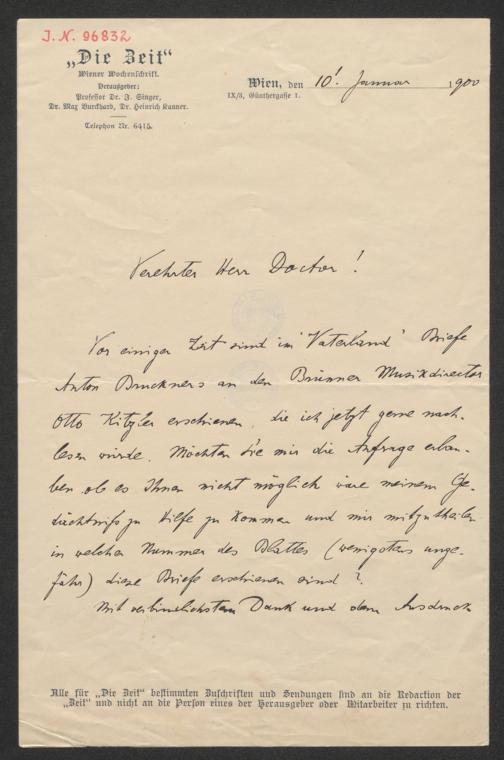 J. N. 96832
„Die Zeit“
Wiener Wochenschrift.
Herausgeber:
Professor Dr. J. Singer,
Dr. Max Burckhard, Dr. Heinrich Kanner.
Telephon Nr. 6415.
Wien, den 10! Januar 1900
IX/3, Günthergasse 1.
Verehrter Herr Doctor!
Vor einiger Zeit sind im "Vaterland" Briefe
Anton Bruckners an den Brünner Musikdirector
Otto Kitzler erschienen, die ich jetzt gerne nach-
lesen würde. Möchten Sie mir die Anfrage erlau-
ben ob es Ihnen nicht möglich wäre meinem Ge-
dächtniss zu Hilfe zu kommen und mir mitzutheilen
in welcher Nummer des Blattes (wenigstens unge-
fähr) diese Briefe erschienen sind?
Mit verbindlichstem Dank und dem Ausdruck
Alle für „Die Zeit“ bestimmten Zuschriften und Sendungen sind an die Redaction der
„Zeit“ und nicht an die Person eines der Herausgeber oder Mitarbeiter zu richten.